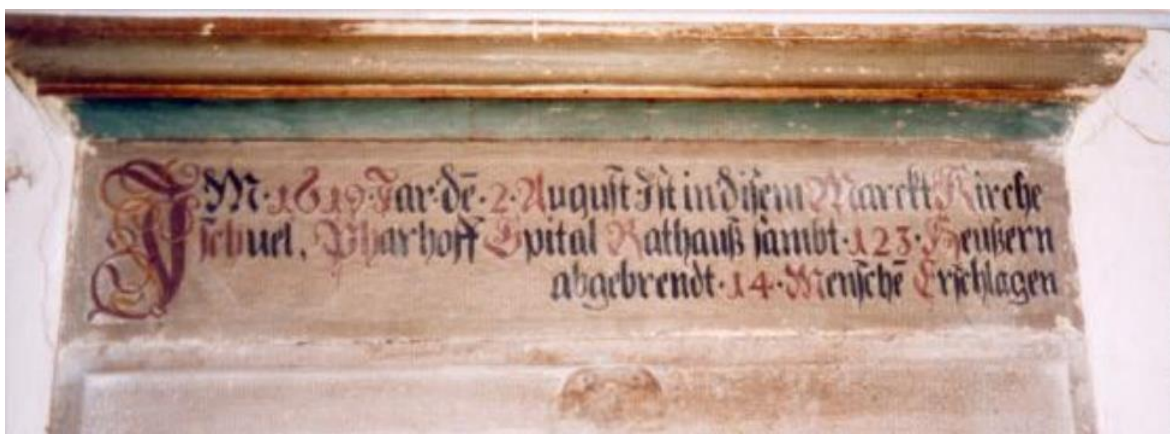 IM·1619·Jar·dē·2·August Ist in disem Marckt Kirche
schuel, Pharhoff Spital Rathauß sambt·123·Heußern
abgebrendt·14·Menschē Erschlagen